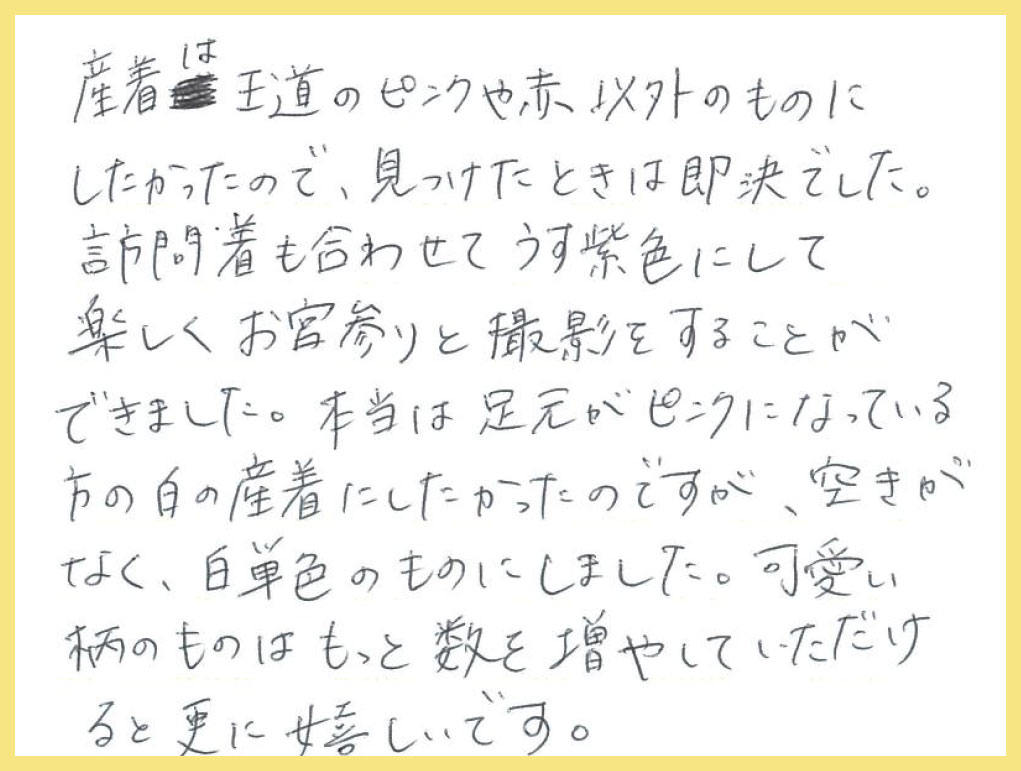 産着は王道のピンクや赤以外のものに
したかったので、見つけたときは即決でした。
訪問着も合わせてうす紫色にして
楽しくお宮参りと撮影をすることが
できました。本当は足元がピンクになっている
方の白の産着にしたかったのですが、空きが
なく、白単色のものにしました。可愛い
柄のものはもっと数を増やしていただけ
ると更に嬉しいです。